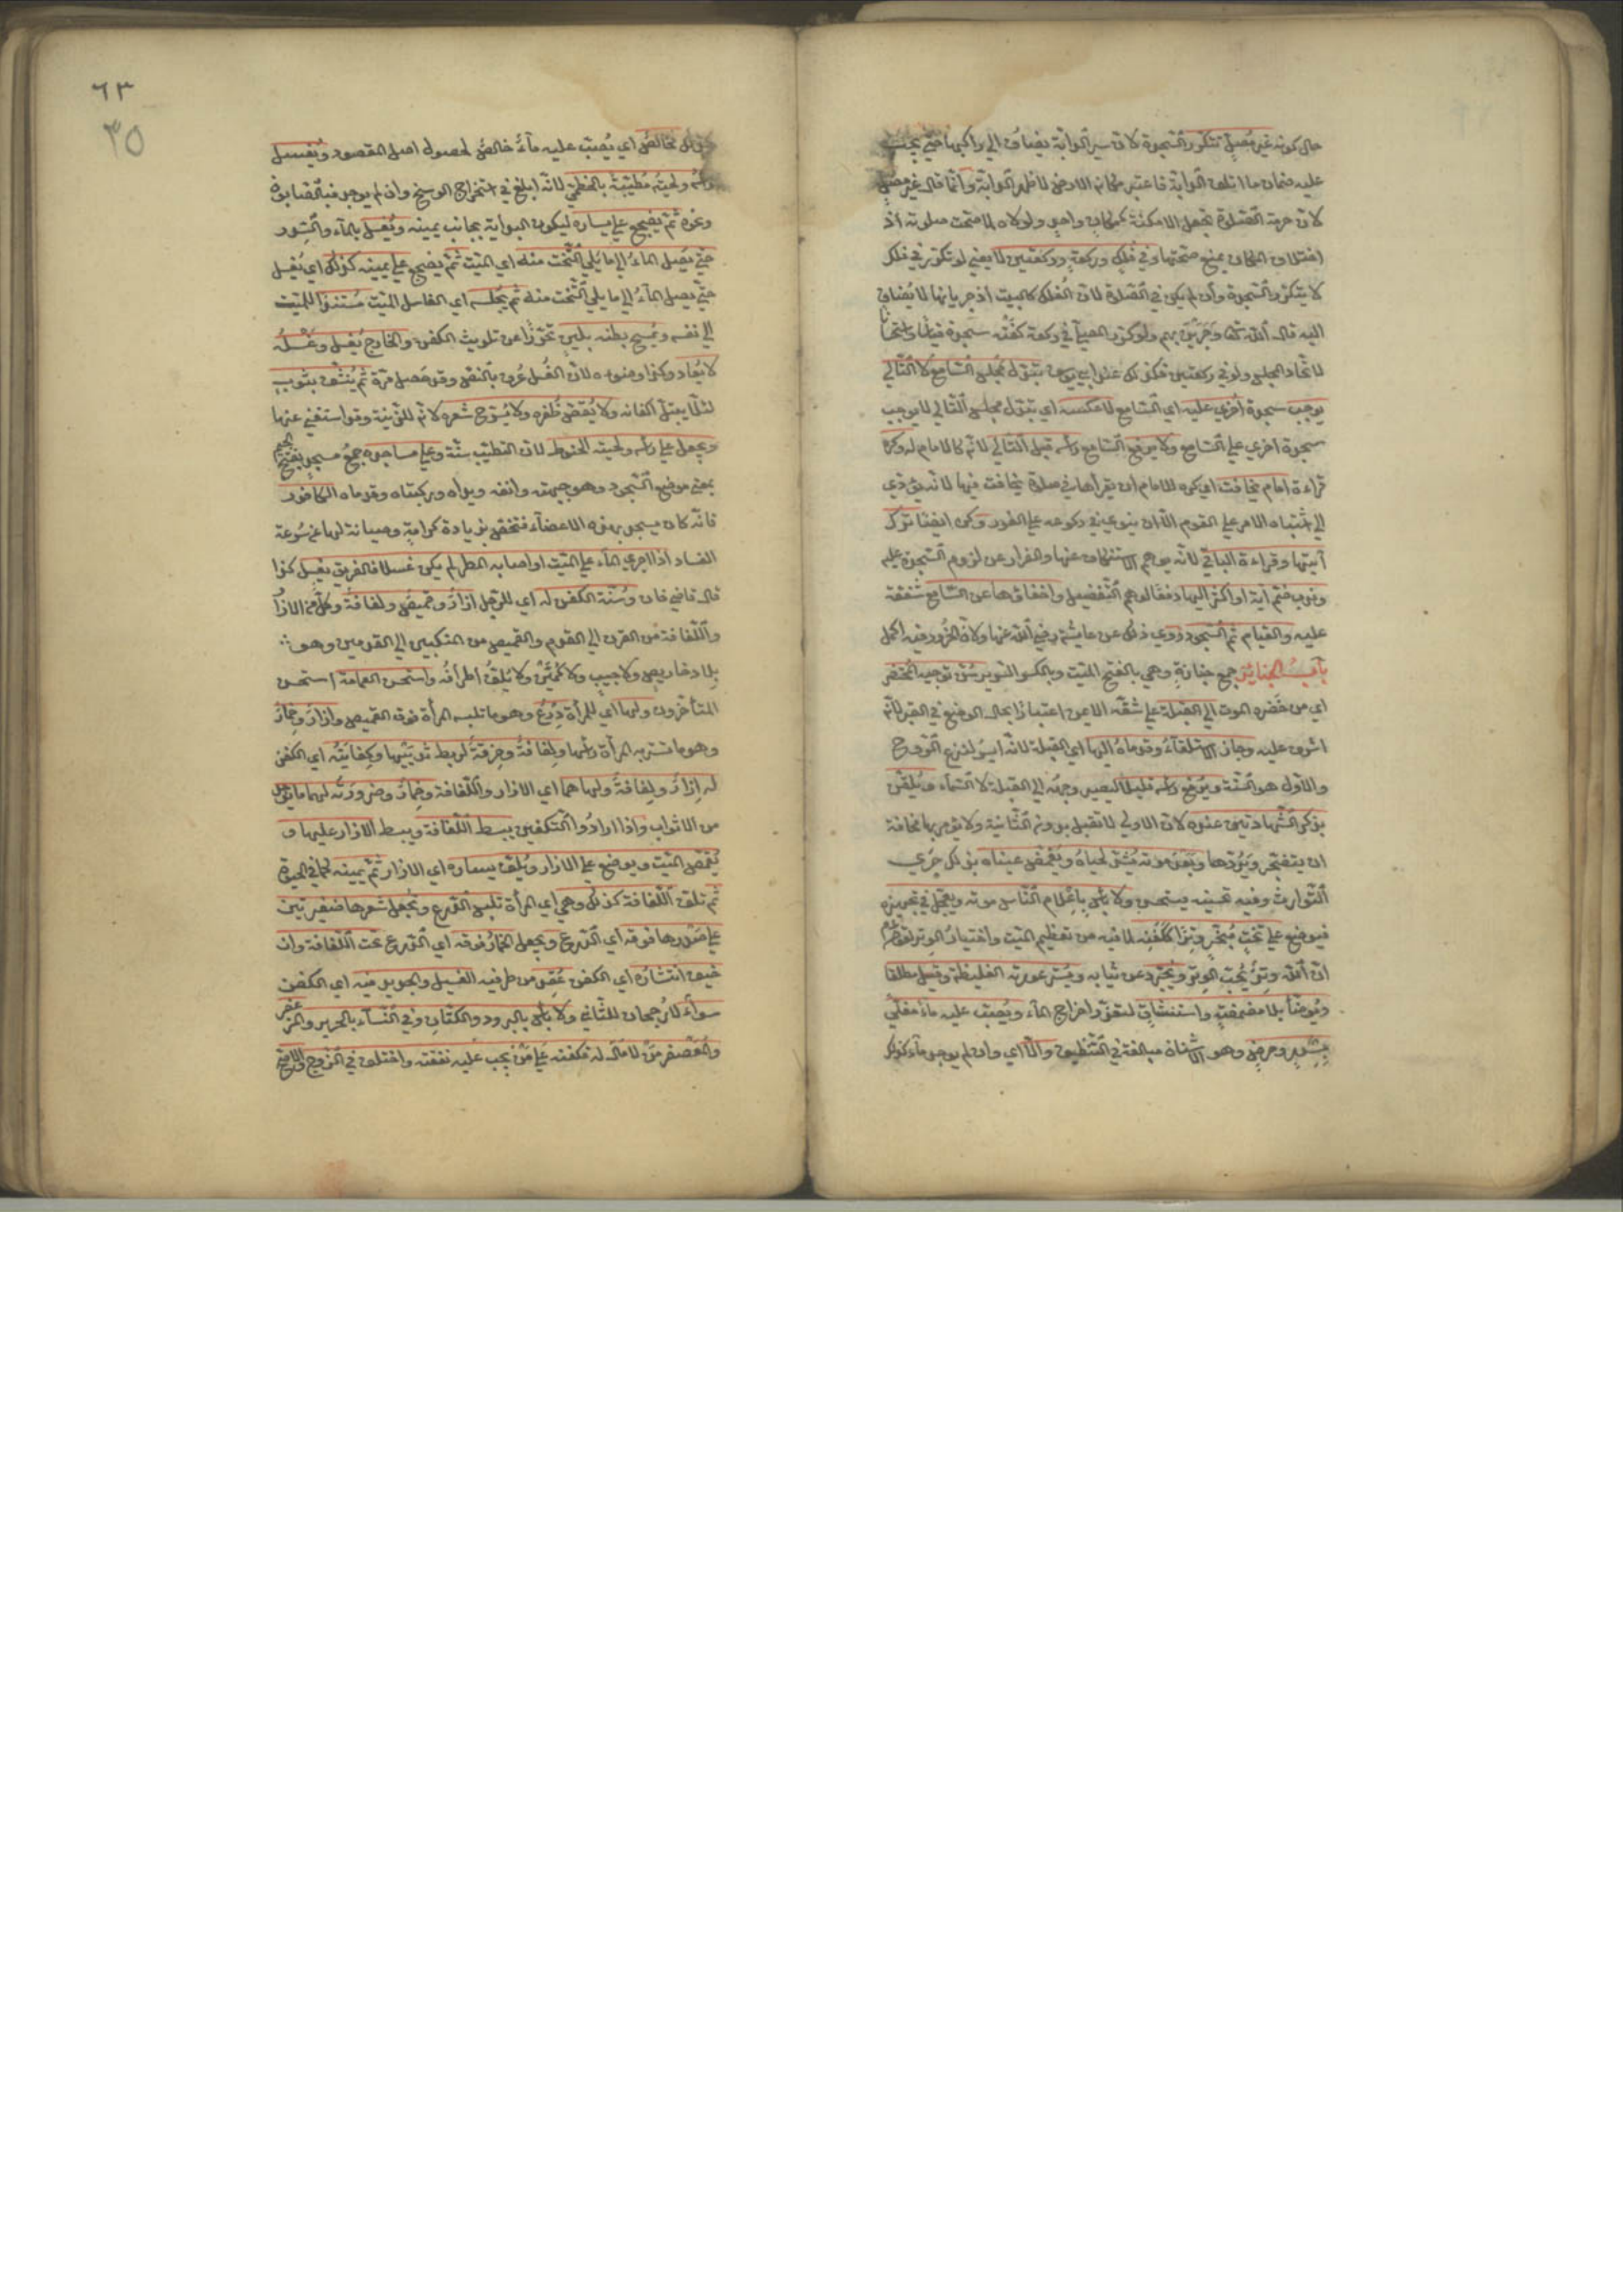 حال كونه غير مصل تتكرر السجدة لان سير الدابة يضاف الى راكبها حتى يجب
عليه ضمان ما اتلف الدابة فاعتبر مكانه الارض لا ظهر الدابة وانما قال غير مصل
لان حرمة الصلوة تجعل الامكنة كمكان واحد ولولاه لما صحت صلوته اذ
اختلاف المكان يمنع صحتها وفي فلك وركعة وركعتين لا يعني لو تكرر في فلك
لا يتكرر السجدة وان لم يكن في الصلوة لان الفلك كالبيت اذ جريانها لا يضاف
اليه قال الله تعا وجرين بهم ولو كرر المصلي في ركعة كفته سجدة قياسا واستحسانا
لاتحاد المجلس ولو في ركعتين فكذلك عند ابي يوسف بتبدل مجلس السامع لا التالي
يوجب سجدة اخرى عليه اي السامع لا عكسه اي تبدل مجلس التالي لا يوجب
سجدة اخرى على السامع ولا يرفع السامع راسه قبل التالي لانه كالامام له وكره
قراءة امام يخافت اي كره للامام ان يقرأها في صلوة يخافت فيها لانه يؤدي
الى اشتباه الامر على القوم الا ان ينوي في ركوعه على الفور وكره ايضا ترك
آيتها وقراءة الباقي لانه يوهم الاستنكاف عنها والفرار عن لزوم السجدة عليه
وندب ضم آية او اكثر اليها دفعا لوهم التفضيل واخفاؤها عن السامع شفقة
عليه والقيام ثم السجود روي ذلك عن عايشة رضي الله عنها ولان الخرور فيه اكمل
باب الجنائز جمع جنازة وهي بالفتح الميت وبالكسر السرير سن توجيه المحتضر
اي من حضره الموت الى القبلة على شقه الايمن اعتبارا بحال الوضع في القبر لانه
اشرف عليه وجاز الاستلقاء وقدماه اليها اي القبلة لانه ايسر لنزع الروح
والاول هو السنة ويرفع راسه قليلا ليصير وجهه الى القبلة لا السماء ويلقن
بذكر الشهادتين عنده لان الاولى لا تقبل بدون الثانية ولا يؤمر بها مخافة
ان يتضجر ويردها وبعد موته يشد لحياه ويغمض عيناه بذلك جرى
التوارث وفيه تحسينه يستحسن ولا باس باعلام الناس موته ويعجل في تجهيزه
فيوضع على تخت مجمر وترا ككفنه لما فيه من تعظيم الميت واختيار الوتر لقوله عم
ان الله وتر يحب الوتر ويجرد عن ثيابه ويستر عورته الغليظة وقيل مطلقا
ويوضأ بلا مضمضة واستنشاق لتعذر اخراج الماء ويصب عليه ماء مغلي
بسدر وحرض وهو الاشنان مبالغة في التنظيف والا اي وان لم يوجد ماء كذلك
فخالص اي يصب عليه ماء خالص لحصول اصل المقصود ويغسل
راسه ولحيته مطيبة بالخطمي لانه ابلغ في استخراج الوسخ وان لم يوجد فبالصابون
ونحوه ثم يضجع على يساره ليكون البداية بجانب يمينه ويغسل بالماء والسدر
حتى يصل الماء الى ما يلي التخت منه اي الميت ثم يضجع على يمينه كذلك اي يغسل
حتى يصل الماء الى ما يلي التخت منه ثم يجلسه اي الغاسل الميت مستندا للميت
الى نفسه ويمسح بطنه بلين تحرزا عن تلويث الكفن والخارج يغسل وغسله
لا يعاد وكذا وضوءه لان الغسل عرف بالنص وقد حصل مرة ثم ينشف بثوب
لئلا يبتل اكفانه ولا يقص ظفره ولا يسرح شعره لانه للزينة وقد استغنى عنها
ويجعل على راسه ولحيته الحنوط لان التطيب سنة وعلى مساجده جمع مسجد بفتح الجيم
بمعنى موضع السجود وهو جبهته وانفه ويداه وركبتاه وقدماه الكافور
فانه كان يسجد بهذه الاعضاء فتختص بزيادة كرامة وصيانة لها عن سرعة
الفساد اذا جرى الماء على الميت او اصابه المطر لم يكن غسلا فالغريق يغسل كذا
قال قاضي خان وسنة الكفن له اي للرجل ازار وقميص ولفافة وكل من الازار
واللفافة من القرن الى القدم والقميص من المنكبين الى القدمين وهو
بلا دخاريص ولا جيب ولا كمين ولا يلفق اطرافه واستحسن العمامة استحسن
المتأخرون ولها اي للمرأة درع وهو ما تلبسه المرأة فوق القميص وازار وخمار
وهو ما تستر به المرأة راسها ولفافة وخرقة لربط ثدييها وكفايته اي الكفن
له ازار ولفافة ولها هما اي الازار واللفافة وخمار وضرورته لهما ما يوجد
من الاثواب واذا ارادوا التكفين يبسط اللفافة ويبسط الازار عليها و
يقمص الميت ويوضع على الازار ويلف يساره اي الازار ثم يمينه كما في الحيوة
ثم تلف اللفافة كذلك وهي اي المرأة تلبس الدرع وتجعل شعرها ضفيرتين
على صدرها فوقه اي الدرع ويجعل الخمار فوقه اي الدرع تحت اللفافة وان
خيف انتشاره اي الكفن عقد من طرفيه الغسيل والجديد فيه اي الكفن
سواء لا رجحان للثاني ولا باس بالبرود والكتان وفي النساء بالحرير والمزعفر
والمعصفر من لا مال له فكفنه على من يجب عليه نفقته واختلف في الزوج